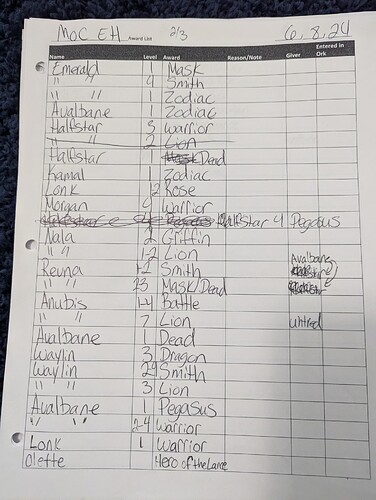 MoC EH Award List 2/3 6.8.24
Name Level Award Reason/Note Giver Entered in Ork
Emerald Mask
" " 4 Smith
" " 1 Zodiac
Avalbane 1 Zodiac
Halfstar 3 Warrior
" " 2 Lion
Halfstar 1 Dead
Kamal 1 Zodiac
Lonk 12 Rose
Morgan 9 Warrior
Halfstar 4 Pegasus
Nala 2 Griffin
" " 1-2 Lion
Reuna 1-2 Smith Avalbane
" " 23 Mask/Dead
Anubis 1-4 Battle
" " 7 Lion Uhtred
Avalbane 1 Dead
Waylin 3 Dragon
Waylin 29 Smith
" " 3 Lion
Avalbane 1 Pegasus
" " 2-4 Warrior
Lonk 1 Warrior
Olette Hero of the Lane